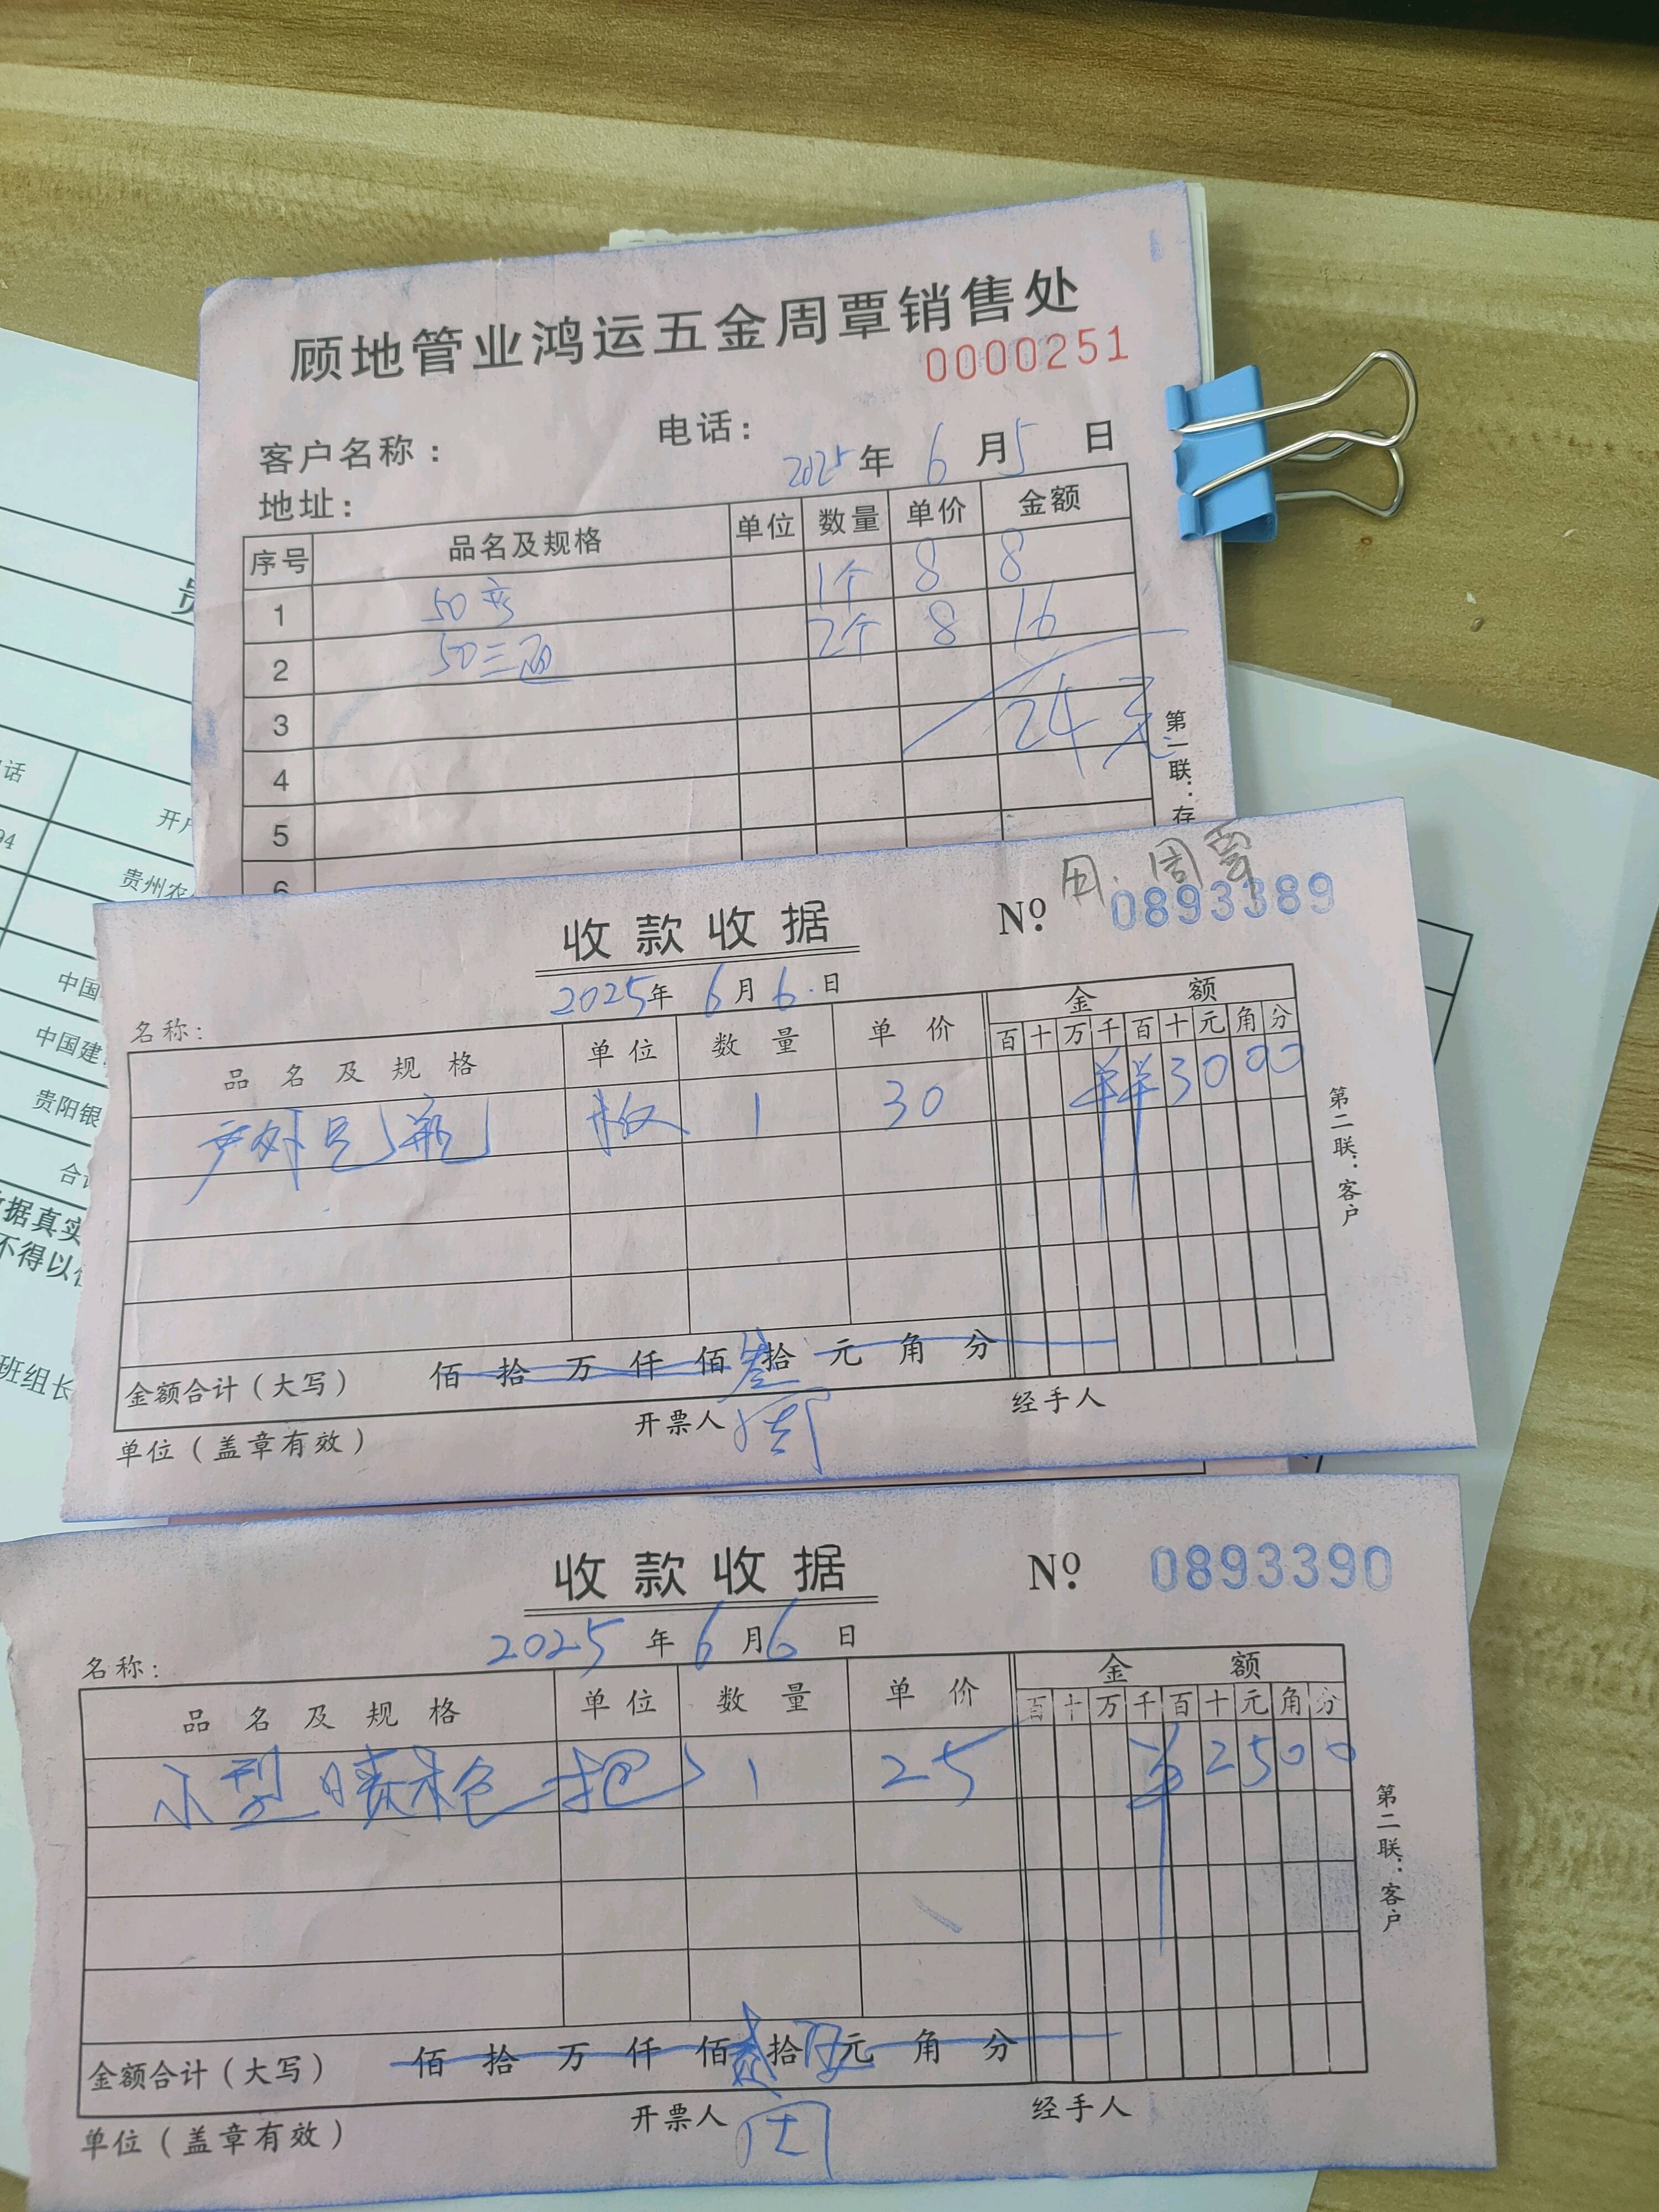 顾地管业鸿运五金周覃销售处
0000251
客户名称： 电话：
2025年 6月5日
地址：
序号 品名及规格 单位 数量 单价 金额
1 50弯 1个 8 8
2 50三通 2个 8 16
3 24元
4
5
6
第一联：存
田.周覃
收款收据 №. 0893389
2025年 6月 6.日
名称：
品名及规格 单位 数量 单价 金额
百十万千百十元角分
户外 瓶 1 30 ¥3000
金额合计（大写） 佰拾万仟佰叁拾元角分
单位（盖章有效） 开票人 周 经手人
第二联：客户
收款收据 №. 0893390
2025年 6月6日
名称：
品名及规格 单位 数量 单价 金额
百十万千百十元角分
小型喷枪 把 1 25 ¥2500
金额合计（大写） 佰拾万仟佰贰拾伍元角分
单位（盖章有效） 开票人 周 经手人
第二联：客户
话
开户
94
贵州农
中国
中国建
贵阳银
合计
据真实
不得以
班组长